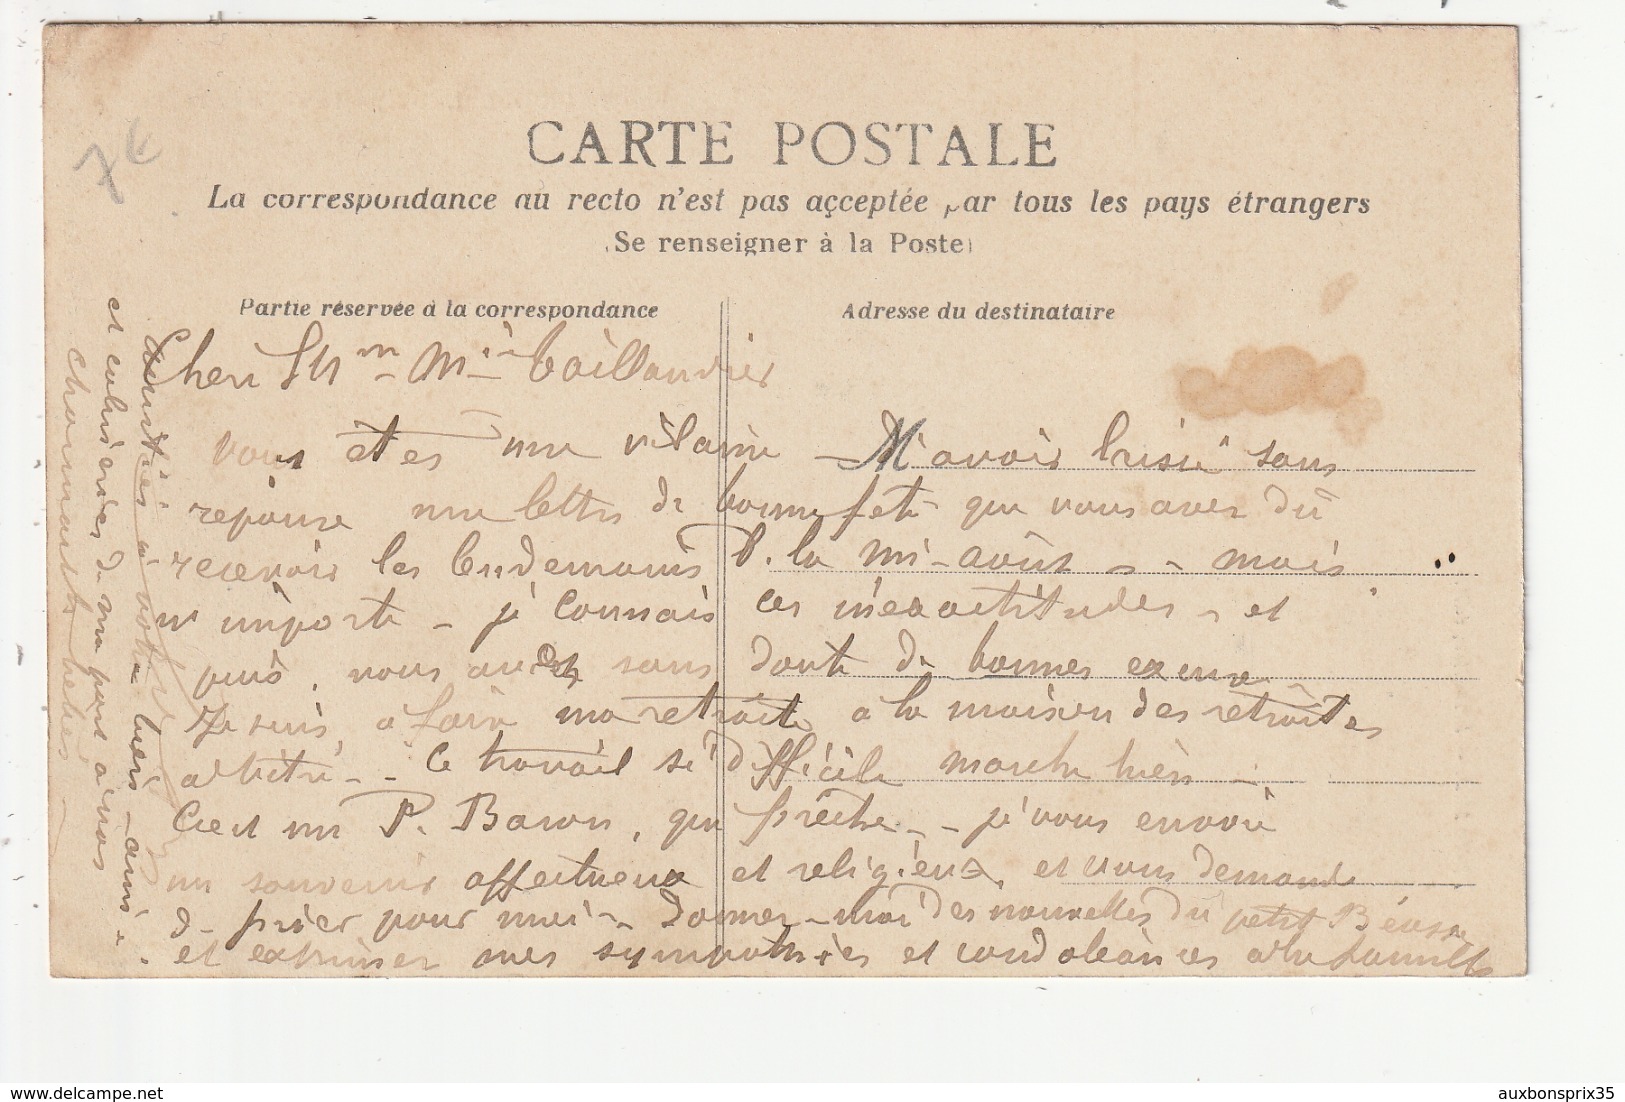 7€
CARTE POSTALE
La correspondance au recto n'est pas acceptée par tous les pays étrangers
(Se renseigner à la Poste)
Partie réservée à la correspondance
Adresse du destinataire
Taillandier
vous etes une vilaine – M'avoir laissé sans
reponse une lettre de bonne fete que vous avez dû
recevoir les lendemains d. la mi-août – – mais
n'importe – je connais ces inexactitudes – et
puis, vous avez sans doute de bonnes
Je suis à faire ma retraite à la maison des retraites
Ce travail si difficile marche bien –
C'est un P. Baron, qui prêche – – je vous envoie
un souvenir affectueux et religieux, et vous demande
d. prier pour moi – Donnez-moi des nouvelles du petit
et exprimer mes sympathies et condoléances à la famille
amitiés à votre bien – aimé –
et de ma part à nos